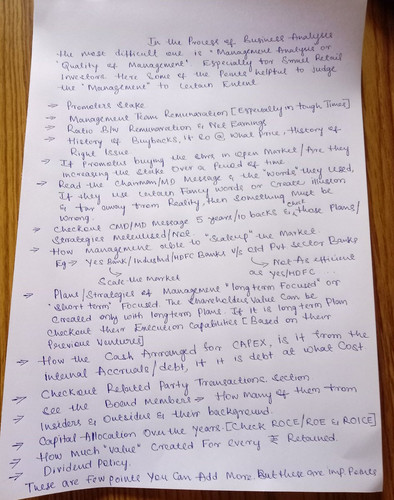 In the Process of Business Analyses
the most difficult one is "Management Analysis or
"Quality of Management" Especially for Small Retail
Investors. Here Some of the Points helpful to judge
the "Management" to certain Extent
→ Promoters Stake
→ Management Team Remunaration [Especially in tough Times]
→ Ratio B/w Remunaration & Net Earnings
→ History of Buybacks, if So @ What Price, History of
Right Issue.
→ If Promoters buying the Share in open Market/Are they
increasing the Stake Over a Period of time
→ Read the Chairman/MD Message & the "Words" they Used,
If they use Certain Fancy words or Create illusion
& far away from Reality, then Something Must be
Wrong.
→ Checkout CMD/MD Message 5 years/10 backs & Check those Plans/
Strategies Meterilised/Not.
→ How Management able to "Scaleup" the Market
Eg → Yes Bank/IndusInd/HDFC Banks V/s Old Pvt Sector Banks
Scale the Market
Not As efficient
as yes/HDFC
→ Plans/Strategies of Management "long term Focused" or
"Short term" Focused The Shareholders Value Can be
Created only with longterm Plans. If it is long term Plan
Checkout their Execution Capabilities [Based on their
Previous Ventures]
→ How the Cash Arranged for CAPEX, is it from the
Internal Accruals/debt, if it is debt at what Cost
→ Checkout Related Party Transactions Section
→ See the Board Members → How many of them from
Insiders & Outsiders & their background.
→ Capital Allocation Over the Years. [Check ROCE/ROE & ROICE]
→ How much "Value" Created For Every ₹ Retained.
→ Dividend Policy.
These are few points You Can Add More, But these are imp. Points